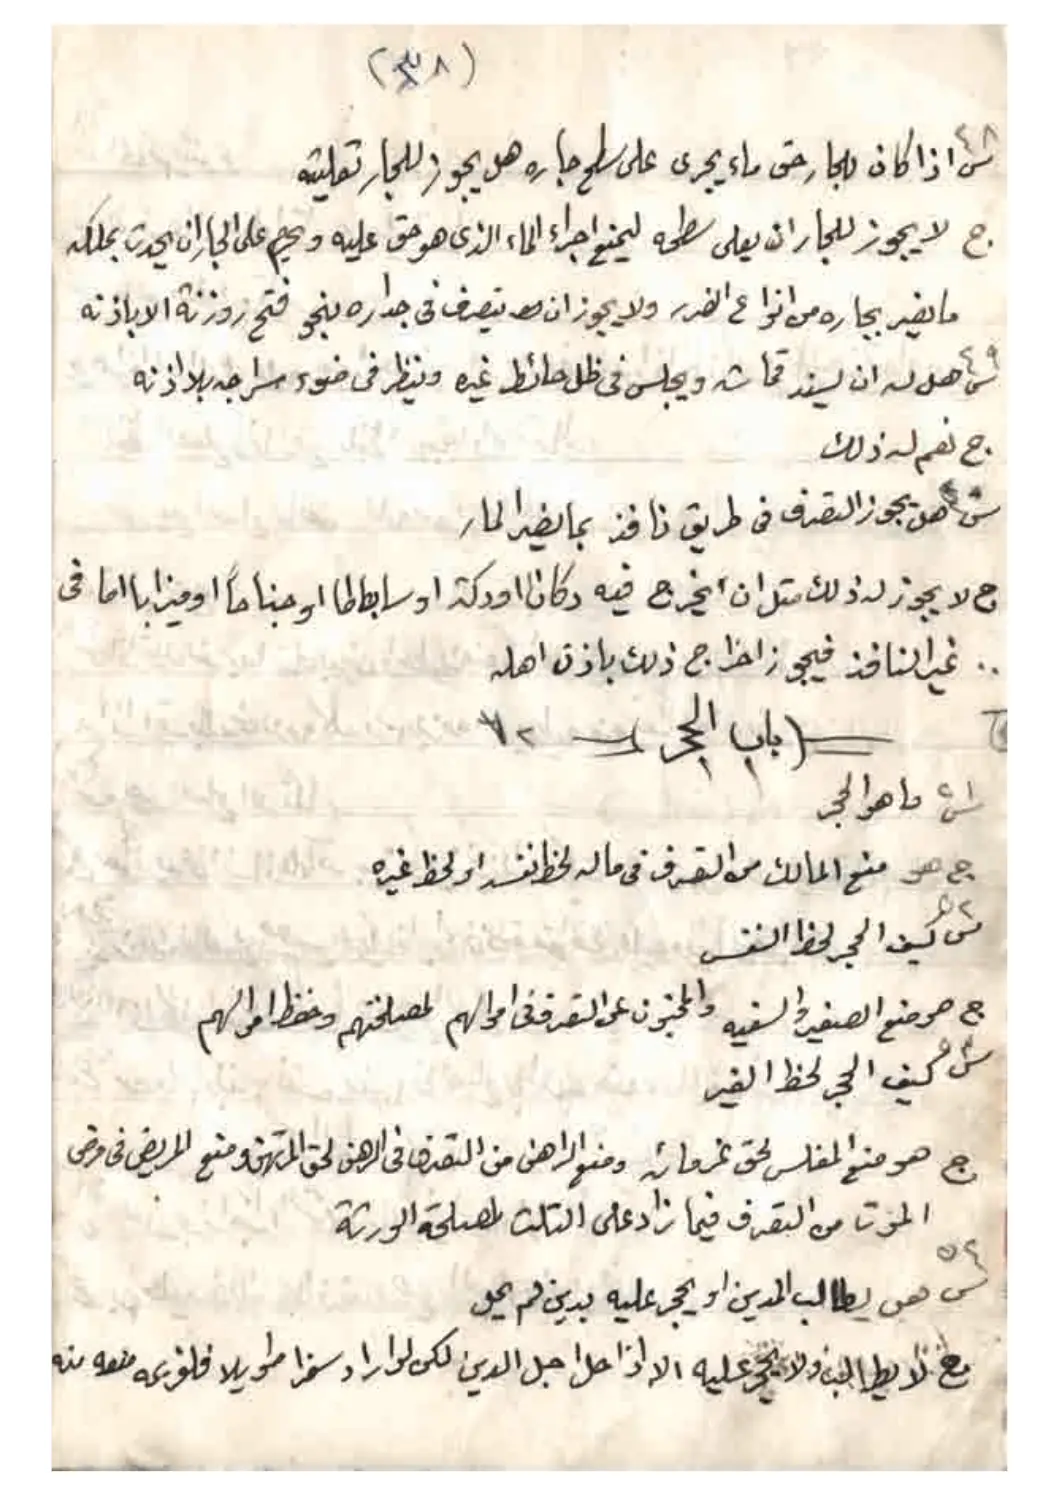 (٣٨)
س٤٨ اذا كان للجار حق ماء يجرى على سطح جاره هل يجوز للجار تعليته
ج لا يجوز للجار ان يعلى سطحه ليمنع اجراء الماء الذى هو حق عليه ويحرم على الجار ان يحدث بملكه
ما يضر بجاره من انواع الضرر ولا يجوز ان يتصرف فى جداره بنحو فتح روزنة الا باذنه
س٤٩ هل له ان يسند قماشه ويجلس فى ظل حائط غيره وينظر فى ضوء سراجه بلا اذنه
ج نعم له ذلك
س هل يجوز التصرف فى طريق نافذ بما يضر المار
ج لا يجوز له ذلك مثل ان يخرج فيه دكانا او دكة او ساباطا او جناحاً او ميزابا اما فى
.. غير النافذ فيجوز اخراج ذلك باذن اهله
(باب الحجر)
س٥١ ما هو الحجر
ج هو منع المالك من التصرف فى ماله لحظ نفسه او لحظ غيره
س٥٢ كيف الحجر لحظ النفس
ج هو منع الصغير والسفيه والمجنون عن التصرف فى اموالهم لمصلحتهم وحفظ اموالهم
س٥٣ كيف الحجر لحظ الغير
ج هو منع المفلس لحق غرمائه ومنع الراهن من التصرف فى الرهن لحق المرتهن ومنع المريض فى مرض
الموت من التصرف فيما زاد على الثلث لمصلحة الورثة
س٥٤ هل يطالب المدين او يحجر عليه بدين لم يحل
ج لا يطالب ولا يحجر عليه الا اذا حل اجل الدين لكن لو اراد سفرا طويلا فلغريمه منعه منه